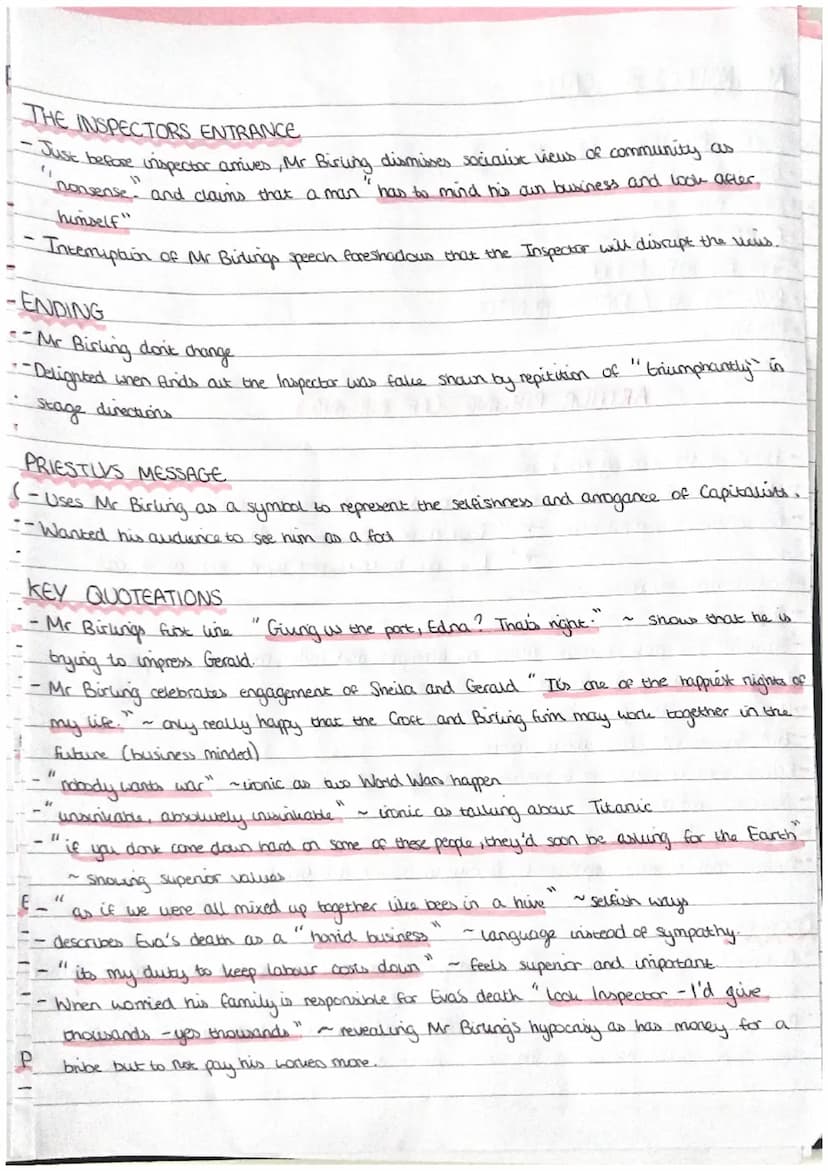 THE INSPECTORS ENTRANCE
- Just before inspector arrives, Mr Birling dismisses socialist views of community as
"nonsense" and claims that a man "has to mind his own business and look after
himself"
- Interruption of Mr Birlings speech foreshadows that the Inspector will disrupt the
- ENDING
- Mr Birling don't change
- Delighted when finds out the Inspector was fake shown by repitition of "triumphantly" in
stage directions
PRIESTLYS MESSAGE
- Uses Mr Birling as a symbol to represent the selfishness and arrogance of Capitalists.
- Wanted his audience to see him as a fool
KEY QUOTEATIONS
- Mr Birlings first line "Giving us the port, Edna? That's right." ~ shows that he is
trying to impress Gerald.
- Mr Birling celebrates engagement of Sheila and Gerald "It's one of the happiest nights of
my life." ~ only really happy that the Croft and Birling firm may work together in the
future (business minded)
- "nobody wants war" ~ ironic as two World Wars happen
- "unsinkable, absolutely unsinkable" ~ ironic as talking about Titanic
- "if you dont come down hard on some of these people, they'd soon be asking for the Earth"
~ showing superior values
- "as if we were all mixed up together like bees in a hive" ~ selfish ways
- describes Eva's death as a "horrid business" ~ language instead of sympathy.
- "its my duty to keep labour costs down" ~ feels superior and important
- When worried his family is responsible for Eva's death "look Inspector - I'd give
thousands - yes thousands" ~ revealing Mr Birling's hypocrisy as has money for a
bribe but to not pay his workers more.